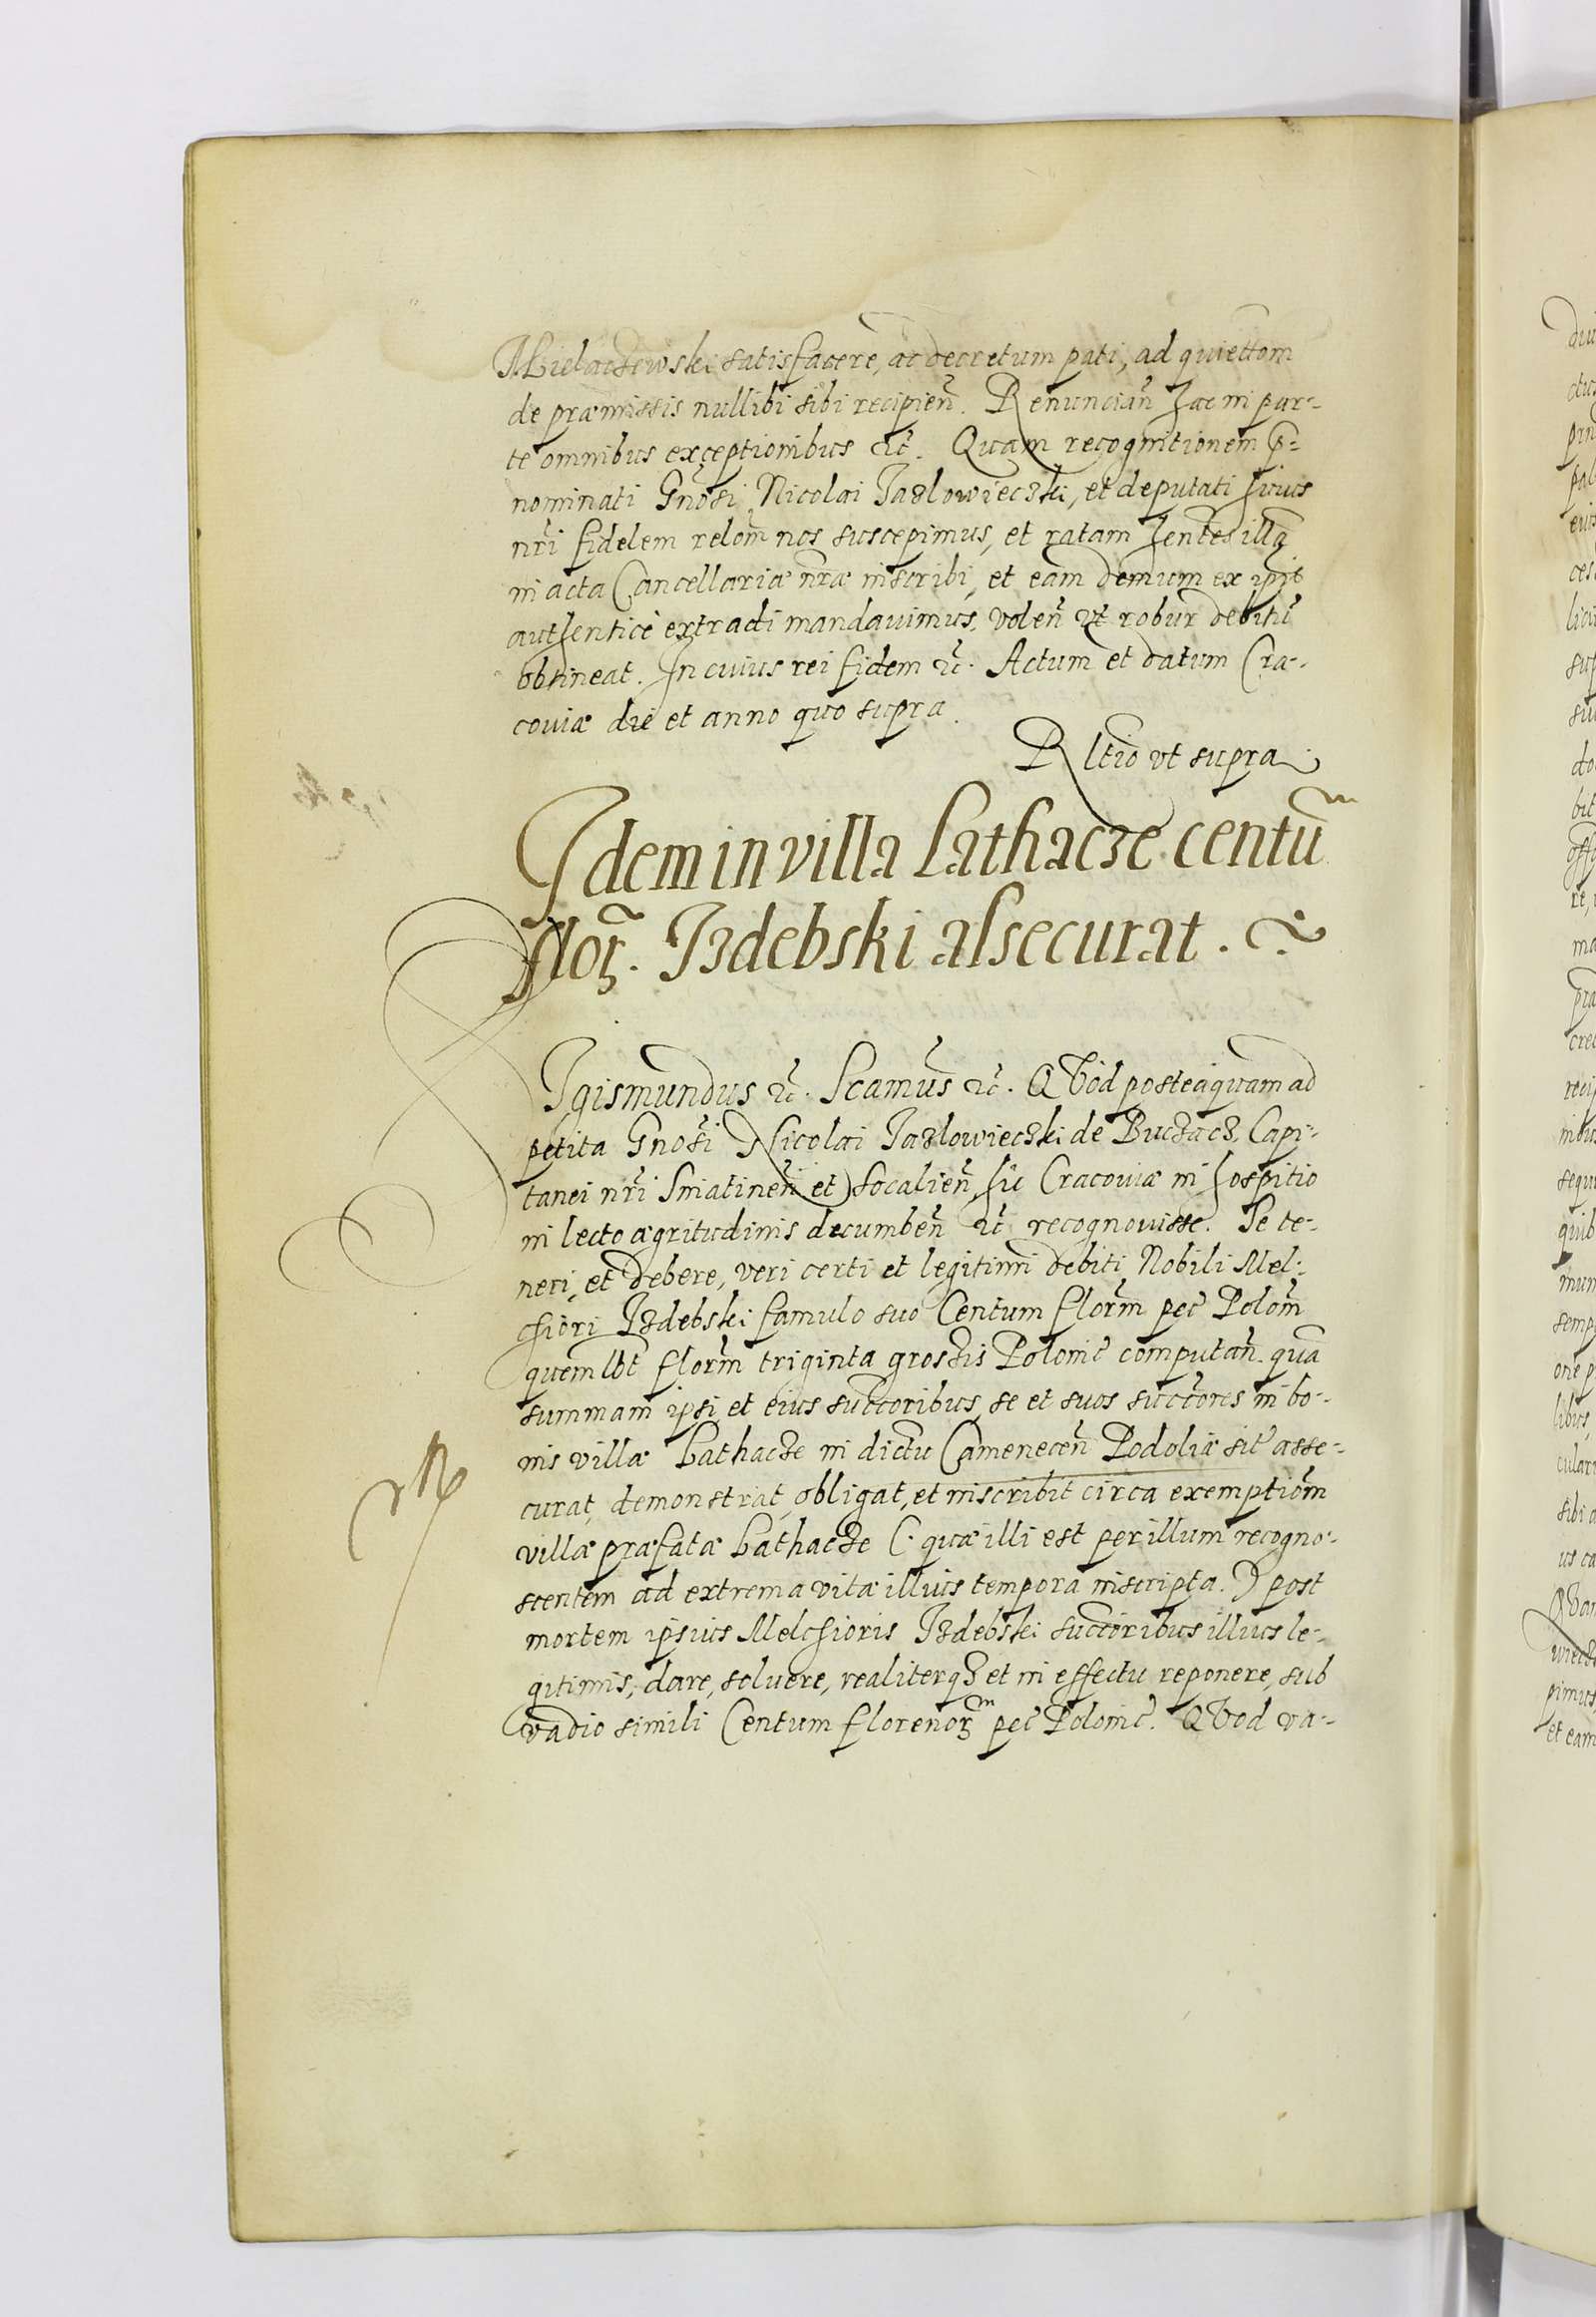 Mielaczewski satisfacere, ac decretum pati, ad quiettom̃
de præmissis nullibi sibi recipien̄. Renuncian̄ hac in par-
te omnibus exceptionibus etc̃. Quam recognitionem p̄-
nominati Gnōsi Nicolai Jazlowieczki, et deputati huius
nr̄i fidelem relom̃ nos suscepimus, et ratam hentes illā
in acta Cancellariæ nr̄æ inscribi, et eam demum ex ip̄is
authentice extradi mandavimus, volen̄ ut robur debitū
obtineat. In cuius rei fidem etc̃. Actum et datum Cra-
coviæ die et anno quo supra.
Rltio ut supra
Idem in villa Lathacze centū
flor. Izdebski assecurat.
Sigismundus etc̃. Scamus etc̃. Quod posteaquam ad
petita Gnōsi Nicolai Jazlowieczki de Buczacz, Capi-
tanei nr̄i Sniatinen̄ et Socalien̄, hic Cracoviæ in hospitio
in lecto ægritudinis decumben̄ etc̃ recognovisse. Se te-
neri, et debere, veri certi et legitimi debiti Nobili Mel-
chiori Izdebski famulo suo Centum florm̃ pec̃ Polom̃
quemlbt florm̃ triginta grossis Polonic̃ computan̄. quā
summam ipsi et eius succoribus, se et suos succores in bo-
nis villæ Lathacze in dictu Camenecen̄ Podoliæ sit̃ asse-
curat, demonstrat, obligat, et inscribit circa exemptiom̃
villæ præfatæ Lathacze (quæ illi est per illum recogno-
scentem ad extrema vitæ illius tempora inscripta.) post
mortem ipsius Melchioris Izdebski succoribus illius le-
gitimis, dare, solvere, realiterq3 et in effectu reponere, sub
vadio simili Centum florenor pec̃ Polonic̃. Quod va-